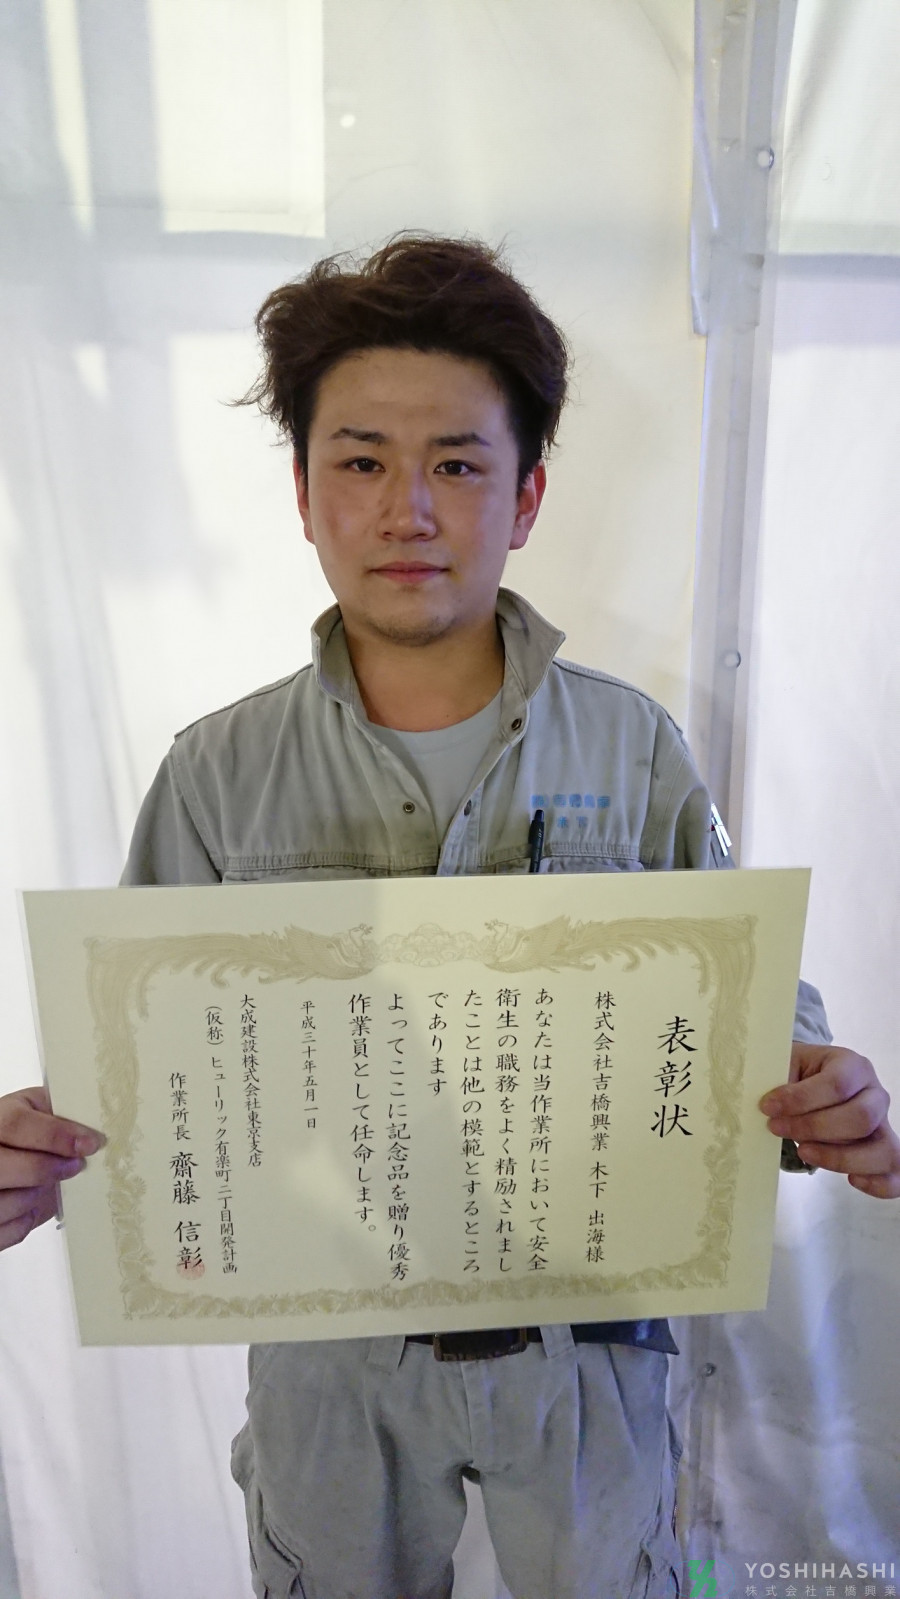 表彰状
株式会社吉橋興業 木下 出海様
あなたは当作業所において安全
衛生の職務をよく精励されまし
たことは他の模範とするところ
であります
よってここに記念品を贈り優秀
作業員として任命します。
平成三十年五月一日
大成建設株式会社東京支店
(仮称) ヒューリック有楽町二丁目開発計画
作業所長 齋藤 信彰
木下
YOSHIHASHI
株式会社吉橋興業